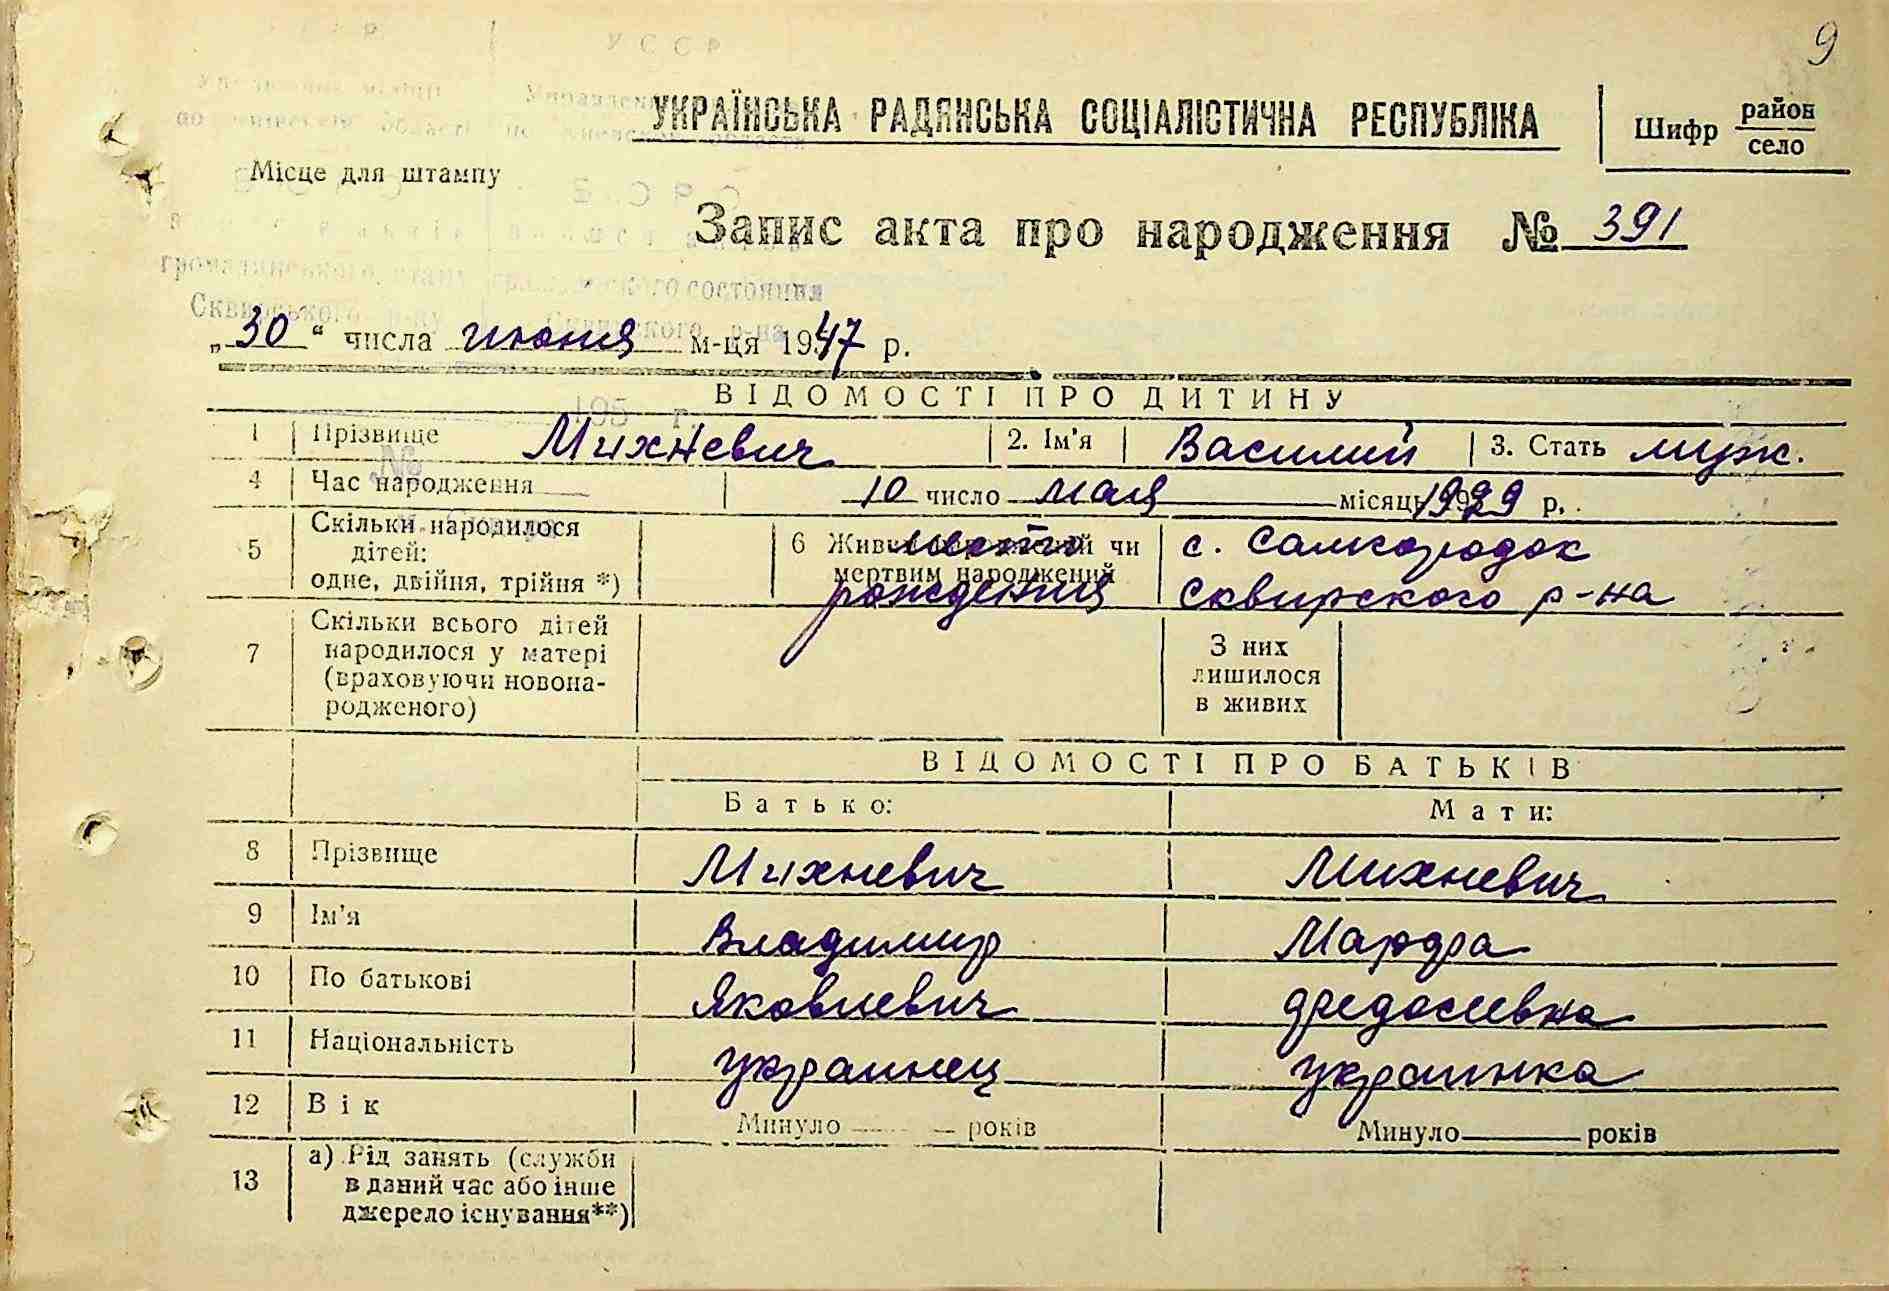 9
УССР
УКРАЇНСЬКА РАДЯНСЬКА СОЦІАЛІСТИЧНА РЕСПУБЛІКА
Шифр район
село
Місце для штампу
Запис акта про народження № 391
громадянського стану гражданского состояния
Сквирського р-ну Сквирского р-на
„30“ числа июня м-ця 1947 р.
ВІДОМОСТІ ПРО ДИТИНУ
195 г.
1 Прізвище Михневич 2. Ім'я Василий 3. Стать муж.
№
4 Час народження 10 число мая місяць 1929 р.
5 Скільки народилося дітей: одне, двійня, трійня *)
6 Живим народжений чи мертвим народжений
место рождения
с. Самгородок
Сквирского р-на
7 Скільки всього дітей народилося у матері (враховуючи новонародженого)
З них лишилося в живих
ВІДОМОСТІ ПРО БАТЬКІВ
Батько: Мати:
8 Прізвище Михневич Михневич
9 Ім'я Владимир Марфа
10 По батькові Яковлевич Федосеевна
11 Національність украинец украинка
12 Вік Минуло років Минуло років
13 а) Рід занять (служби
в даний час або інше
джерело існування**)